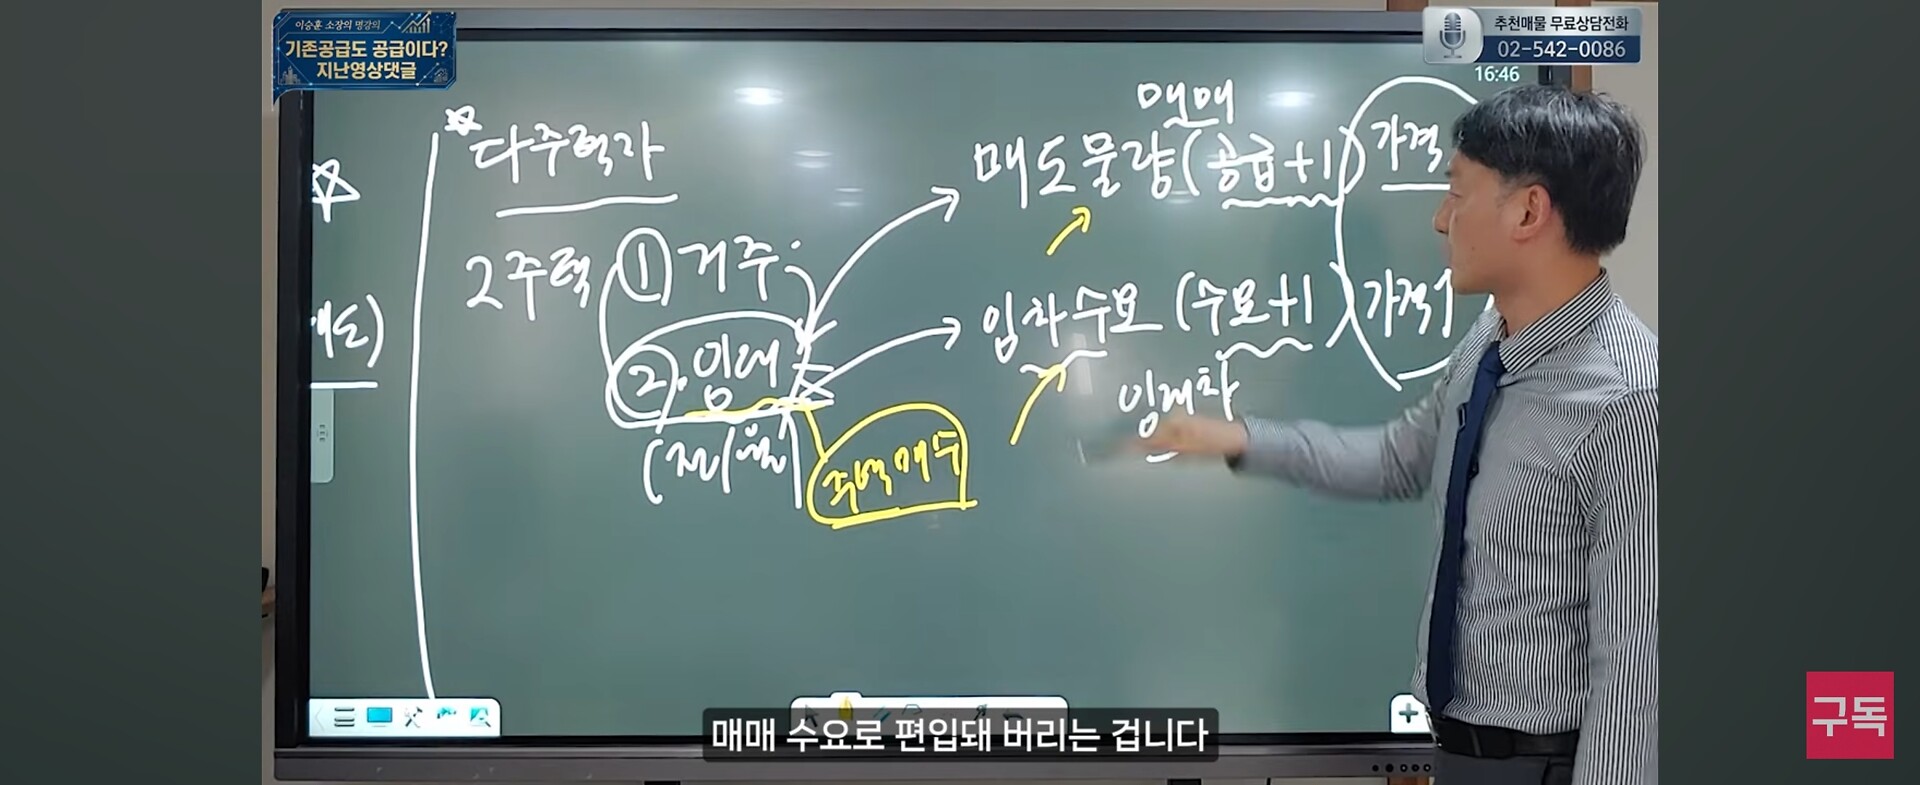 이승훈 소장의 명강의
기존공급도 공급이다?
지난영상댓글
추천매물 무료상담전화
02-542-0086
16:46
다주택자
2주택 ① 거주
② 임대
(전/월)
주택매수
매매
매도물량 (공급+1) 가격
임차수요 (수요+1) 가격↑
임대차
매매 수요로 편입돼 버리는 겁니다
구독